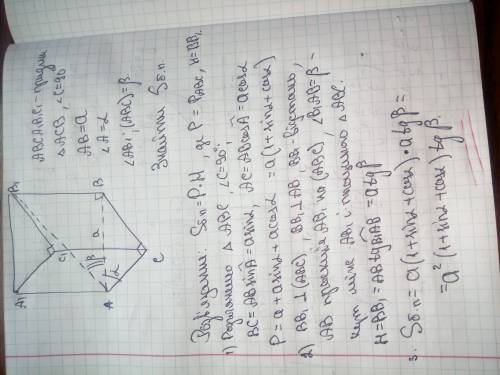 ABCA₁B₁C₁ – призма
△ACB, ∠C=90
AB=a
∠A=α
∠AB₁; (ABC)=β.
Знайти Sб.п.
A₁
B₁
C₁
A
B
C
a
α
β
Розв'язання: Sб.п=P·H, де P=P_ABC, H=BB₁
1) Розглянемо △ABC, ∠C=90°,
BC=AB sinA=a sinα, AC=AB cosA=a cosα
P=a+a sinα+a cosα=a(1+sinα+cosα)
2) BB₁⊥(ABC), BB₁⊥AB, BB₁-відстань,
AB проекція AB₁ на (ABC), ∠B₁AB=β-
кут між AB₁ і площиною △ABC.
H=BB₁=AB tg B₁AB=a tgβ
3. Sб.п=a(1+sinα+cosα)·a tgβ=
=a²(1+sinα+cosα) tgβ.